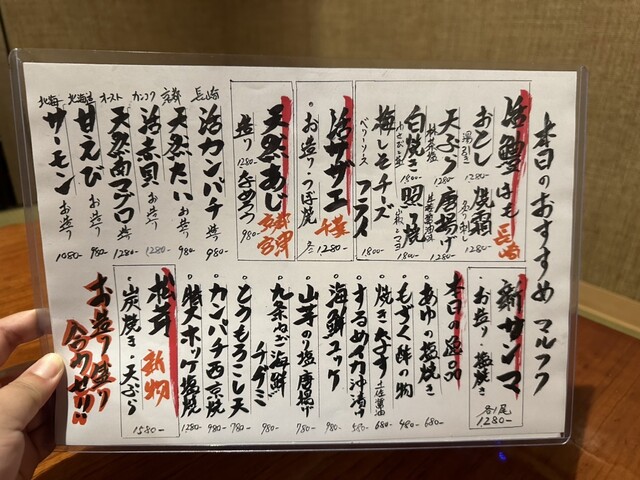 本日のおすすめ マルフク
活鱧 はも 長崎
おとし 湯引き 1280-
焼霜 炙り刺し 1280-
天ぷら 抹茶塩 1280-
唐揚げ 1280-
白焼き わさび 1800-
照り焼 1800-
梅しそチーズフライ 1800-
活サザエ 千葉
・お造り・つぼ焼 各 1280-
天然あじ 京都 宮津
造り 1280-
なめろう 980-
長崎 活カンパチ 造り 980-
京都 天然たい お造り 980-
カンコク 活赤貝 お造り 1280-
オースト 天然南マグロ 造り 1280-
北海道 甘えび お造り 980-
北海 サーモン お造り 1080-
新サンマ
・お造り・塩焼き 各1尾 1280-
本日の逸品
・あゆの塩焼き 680-
・もずく酢の物 480-
・焼きなす 土佐醤油 680-
・するめイカ沖漬け 580-
・海鮮ユッケ 980-
・山芋のり塩唐揚げ 780-
・九条ねぎ海鮮チヂミ 980-
・とうもろこし天 780-
・カンパチ西京焼 980-
・特大ホッケ塩焼 1280-
松茸 新物
・炭焼き・天ぷら 1580-
お造り盛り合わせ!!